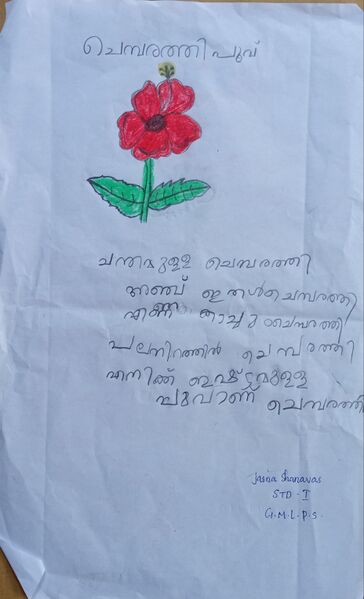 ചെമ്പരത്തി പൂവ്
ചന്തമുള്ള ചെമ്പരത്തി
അഞ്ച് ഇതൾചെമ്പരത്തി
എണ്ണ കാച്ചും ചെമ്പരത്തി
പലനിറത്തിൻ ചെമ്പരത്തി
എനിക്ക് ഇഷ്ട്ടമുള്ള
പൂവാണ് ചെമ്പരത്തി
Jasna Shanavas
STD - I
G.M.L.P.S.